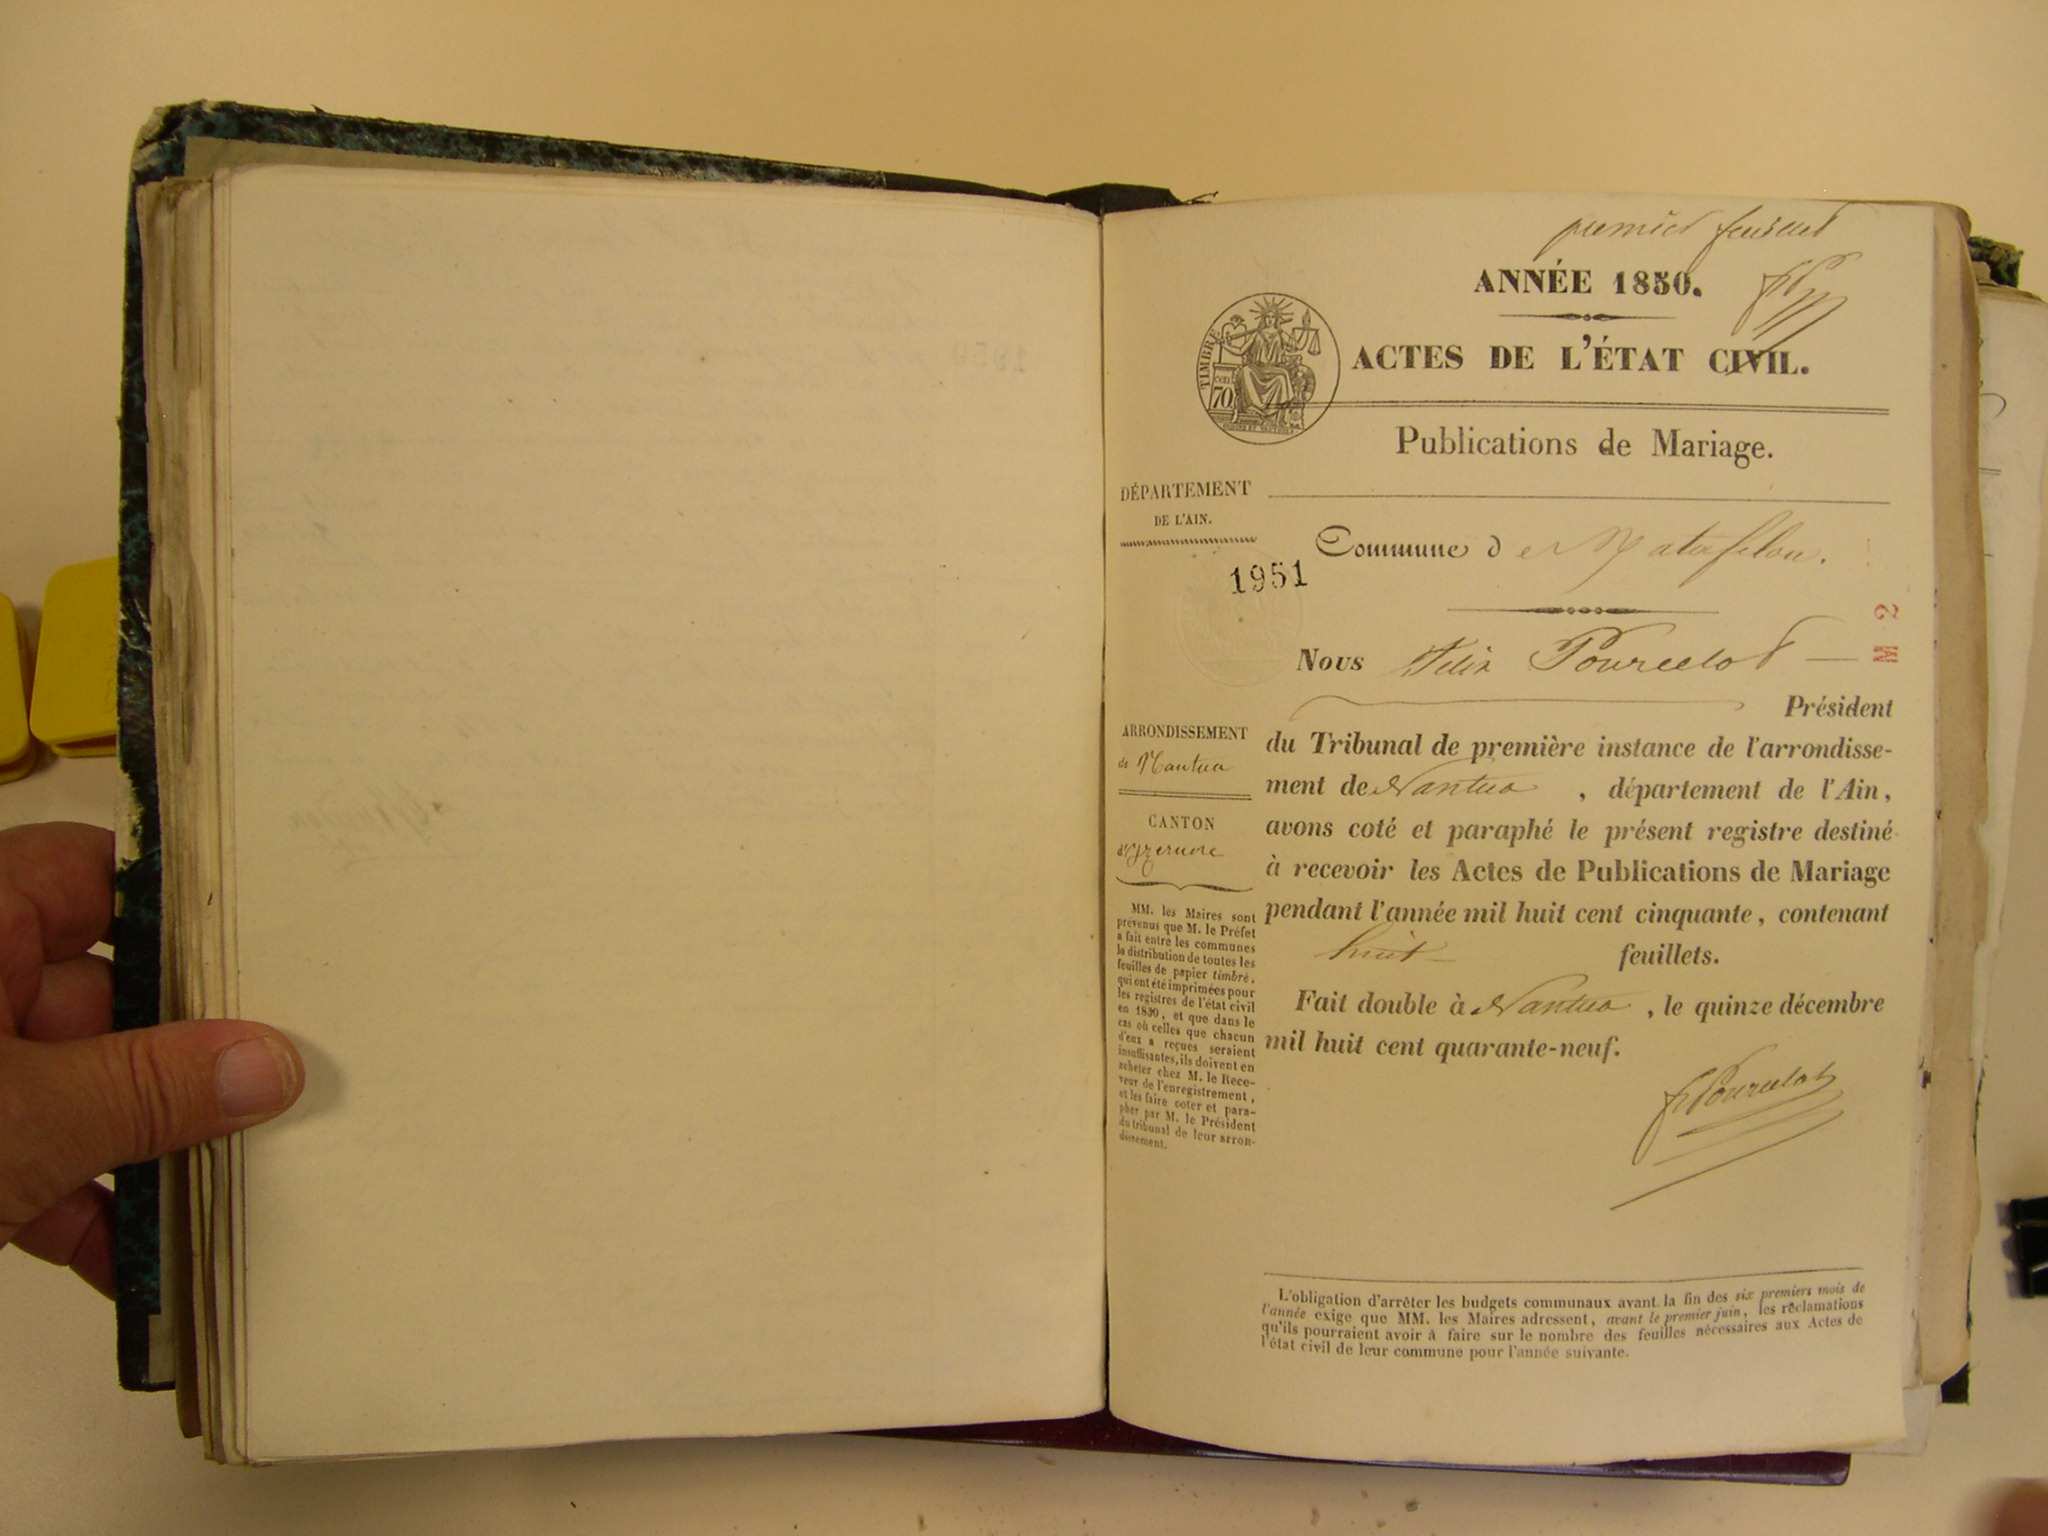 premier feuillet
ANNÉE 1850.
ACTES DE L'ÉTAT CIVIL.
TIMBRE
cen
70
Publications de Mariage.
DÉPARTEMENT
DE L'AIN.
Commune de Matafelon.
1951
M 2
Nous Félix Pourcelot
Président
du Tribunal de première instance de l'arrondisse-
ment de Nantua, département de l'Ain,
avons coté et paraphé le présent registre destiné
à recevoir les Actes de Publications de Mariage
pendant l'année mil huit cent cinquante, contenant
huit feuillets.
Fait double à Nantua, le quinze décembre
mil huit cent quarante-neuf.
F Pourcelot
ARRONDISSEMENT
de Nantua
CANTON
d'Izernore
MM. les Maires sont
prévenus que M. le Préfet
a fait entre les communes
la distribution de toutes les
feuilles de papier timbré,
qui ont été imprimées pour
les registres de l'état civil
en 1850, et que dans le
cas où celles que chacun
d'eux a reçues seraient
insuffisantes, ils doivent en
acheter chez M. le Rece-
veur de l'enregistrement,
et les faire coter et para-
pher par M. le Président
du tribunal de leur arron-
dissement.
L'obligation d'arrêter les budgets communaux avant la fin des six premiers mois de
l'année exige que MM. les Maires adressent, avant le premier juin, les réclamations
qu'ils pourraient avoir à faire sur le nombre des feuilles nécessaires aux Actes de
l'état civil de leur commune pour l'année suivante.